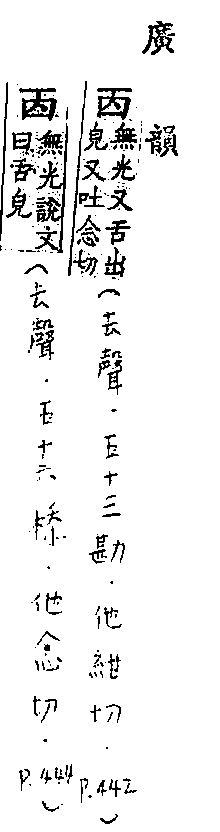 廣韻
㓁無光又舌出皃又吐念切(去聲.五十三勘.他紺切.P.442)
㓁無光說文曰舌皃(去聲.五十六㮇.他念切.P.444)